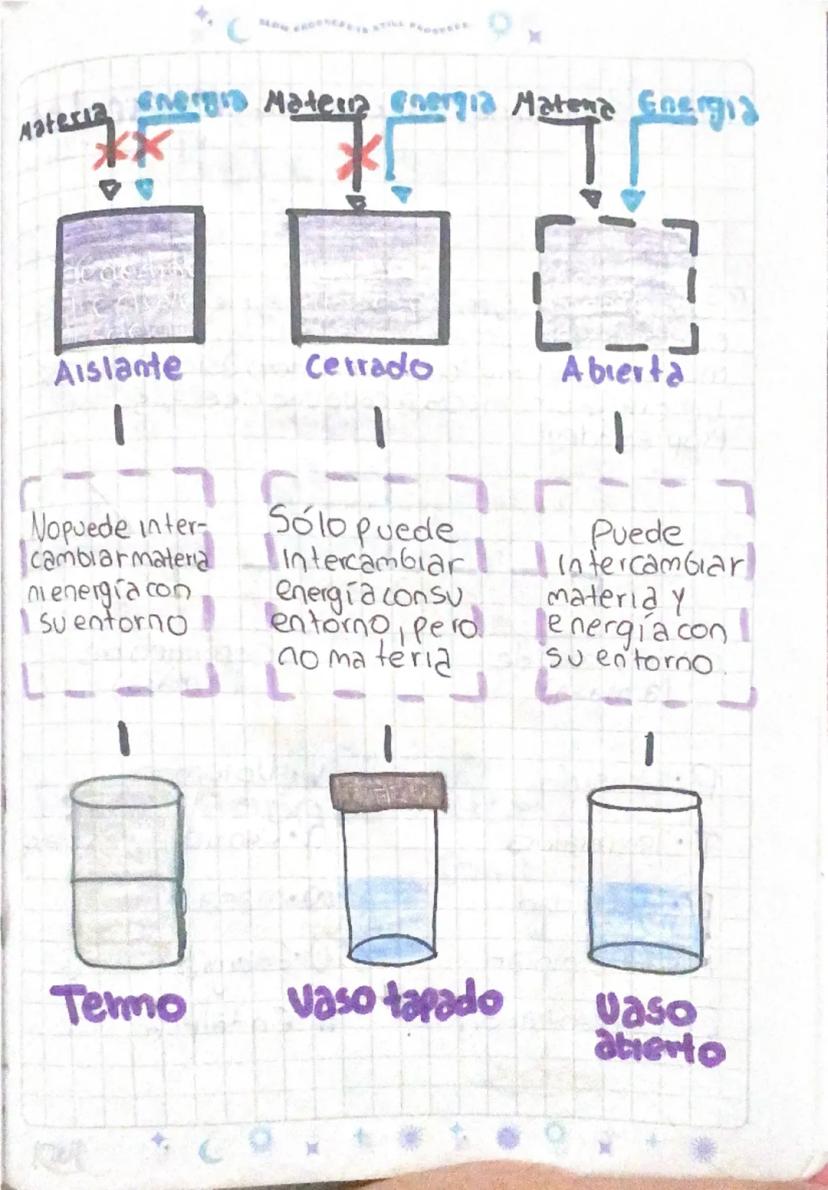 SLOW PROGRESS IS STILL PROGRESS
Materia energia Materia energia Materia Energia
Aislante Cerrado Abierta
No puede inter-
cambiar materia
ni energía con
su entorno
Sólo puede
intercambiar
energía con su
entorno, pero
no materia
Puede
intercambiar
materia y
energía con
su entorno.
Termo Vaso tapado Vaso
abierto